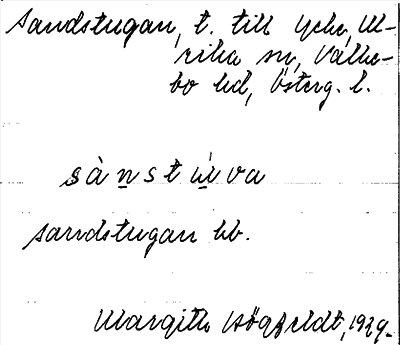 Sandstugan, t. till Yche, Ul-
rika sn, Valke-
bo hd, Österg. l.
sànstu̲va
sandstugan hb.
Margith Högfeldt, 1929.